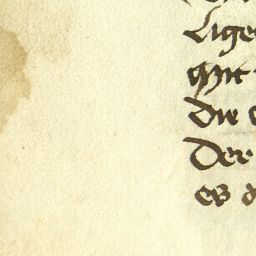 Lige
Mit
Die
Der
es d